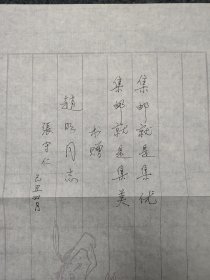 集邮就是集优
集邮就是集美
书赠
赵明同志
張守仁
己丑四月